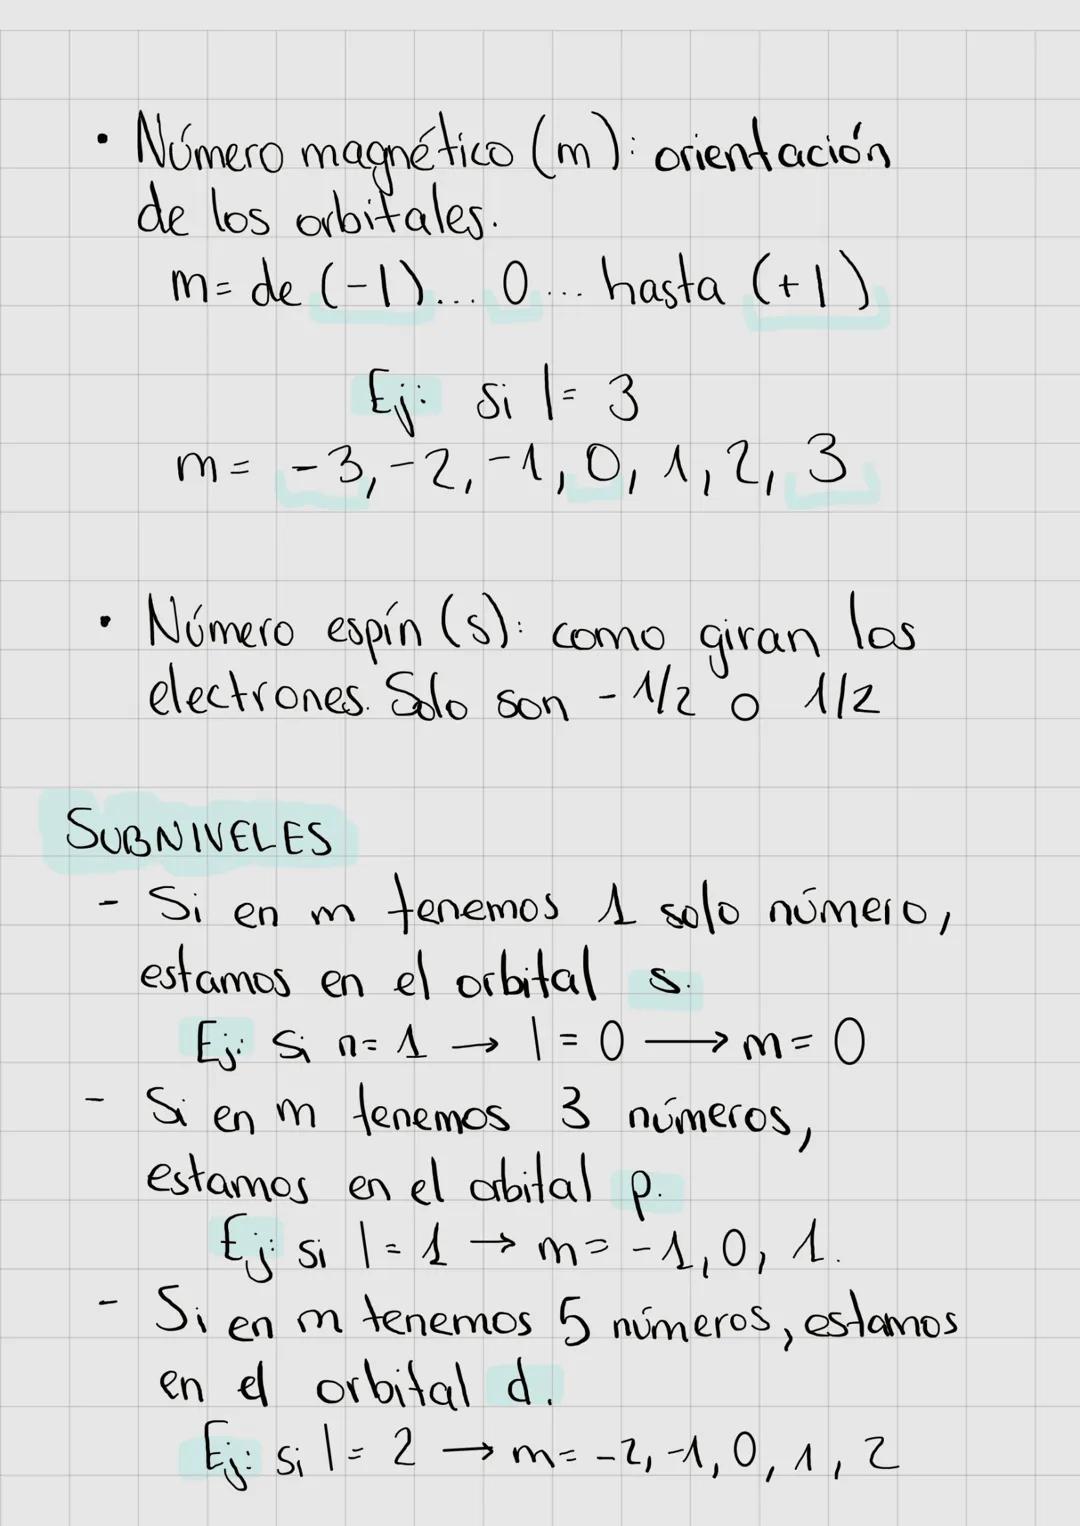 • Número magnético (m): orientación
de los orbitales.
m= de (-l)... 0 ... hasta (+l)
Ej: si l= 3
m= -3, -2, -1, 0, 1, 2, 3
• Número espín (s): como giran los
electrones. Solo son -1/2 o 1/2
SUBNIVELES
- Si en m tenemos 1 solo número,
estamos en el orbital s.
Ej: Si n= 1 → l = 0 → m= 0
- Si en m tenemos 3 números,
estamos en el orbital p.
Ej: si l= 1 → m= -1, 0, 1.
- Si en m tenemos 5 números, estamos
en el orbital d.
Ej: si l= 2 → m= -2, -1, 0, 1, 2